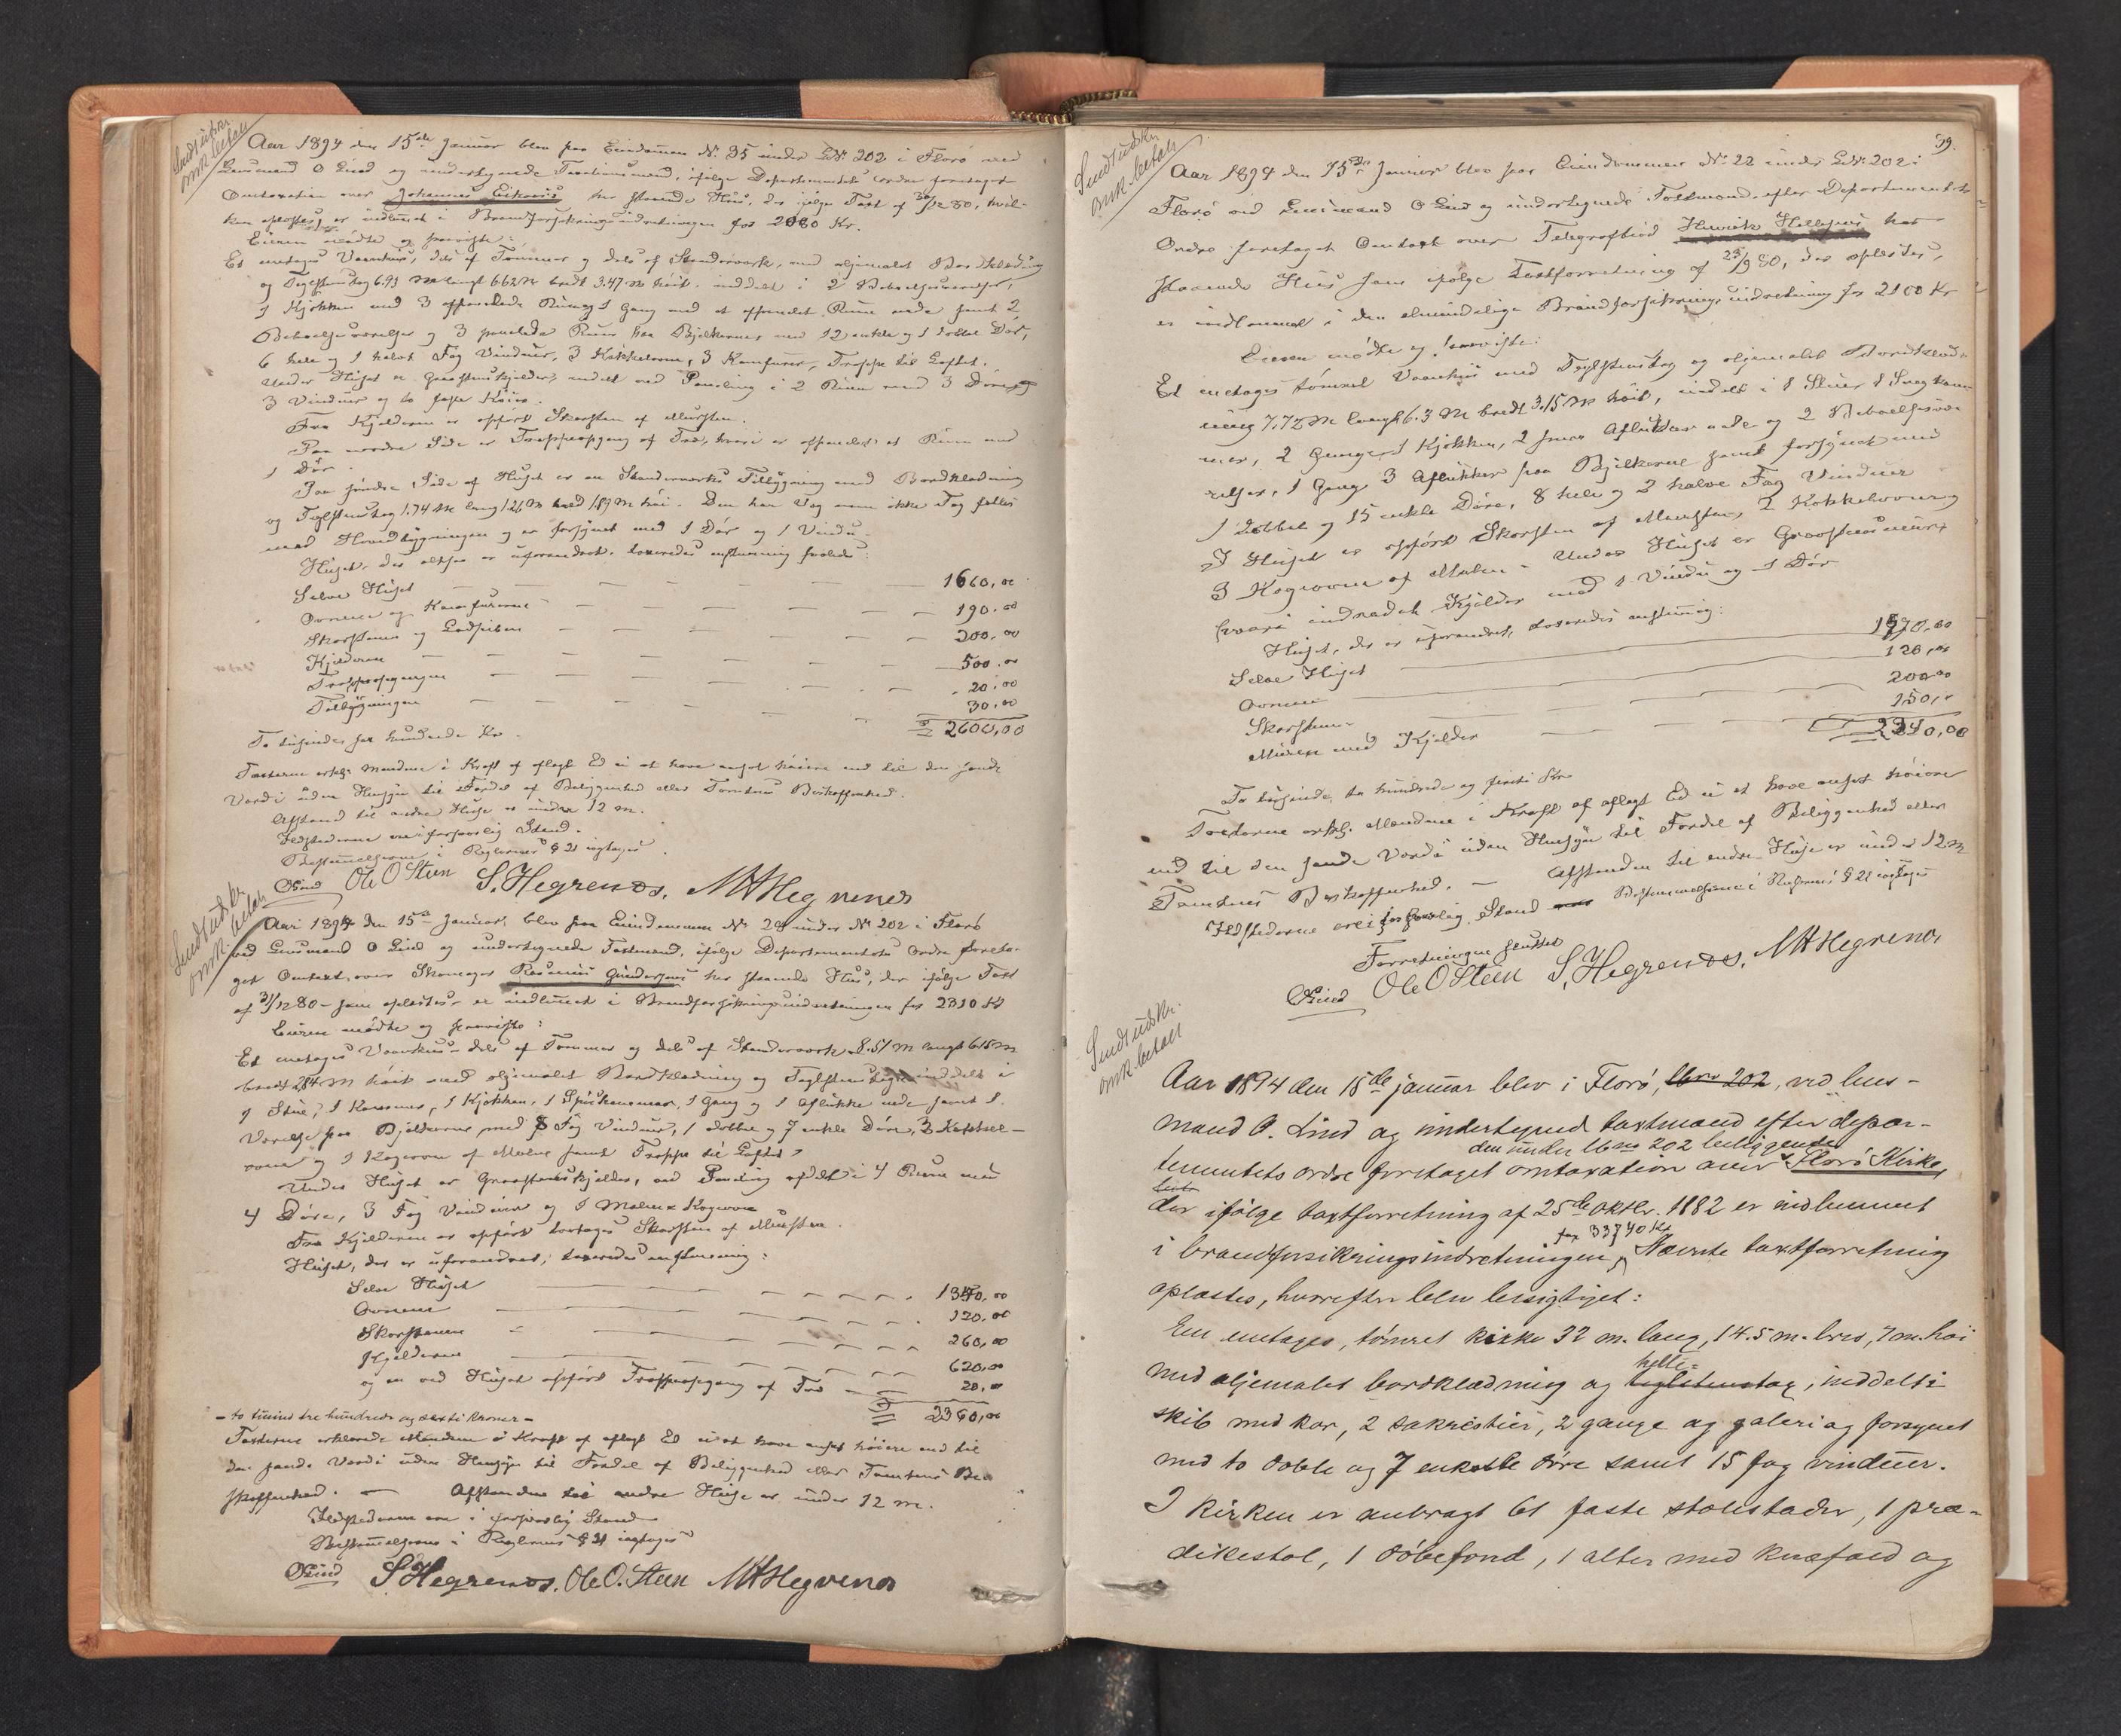 Sendt udskr.
omk. betalt
Aar 1894 den 15de Januar blev paa Eiendommen No. 35 under LNo. 202 i Florö ved
Lensmand O Lind og undertegnede Taxtionsmænd, ifølge Departementets ordre foretaget
Omtaxation over Johannes tilhørende Hus, der ifølge Taxt af 30/12 80, hvil-
ken oplæstes, er indlemmet i Brandforsikringsindretningen for 2080 Kr.
Eieren mödte og paaviste:
Et enetages Vaanhus, dels af Tömmer og dels af Standerverk, med oljemalet Bordklædning
og Teglstenstag 6.93 M langt 6.62 M bredt 3.47 M höit, inddelt i 2 Beboelsesværelser,
1 Kjökken med 3 afpanelede Rum og 1 Gang med et afpanelet Rum nede samt 2
Beboelsesværelser og 3 panelede Rum paa Bjelkerne med 12 enkle og 1 dobbel Dör,
6 hele og 1 halvt Fag Vinduer, 3 Kakkelovne, 3 Komfurer, Trappe til Loftet.
Under Huset er Graastenskjelder, indelt ved Paneling i 2 Rum med 3 Döre og
3 Vinduer og to
Fra Kjelderen er opfört Skorsten af Mursten.
Paa nordre Side er Trappeopgang af Træ, hvori er afpanelet et Rum med
1 Dör.
Paa söndre Side af Huset er en Standerverks Tilbygning med Bordklædning
og Teglstenstag 1.74 M lang 1.26 M bred 1.89 M höi. Den har Væg men ikke Tag fælles
med Hovedbygningen og er forsynet med 1 Dör og 1 Vindu.
Huset, der altsaa er uforandret, taxeredes enstemmig saaledes:
Selve Huset 1660,00
Ovnene og Komfurerne 190.00
Skorstenen og 200.00
Kjelderen 500.00
Trappeopgangen 20.00
Tilbygningen 30.00
= 2600,00
To tusinde sex hundrede Kr.
Taxterne erkl. Mændene i Kraft af aflagt Ed ei at have ansat höiere end til den sande
Værdi uden Hensyn til Fordel af Beliggenhed eller Tomtens Beskaffenhed.
Afstand til andre Huse er under 12 m.
Ildstederne ere i forsvarlig Stand.
Bestemmelserne i Reglernes § 21 iagtages.
OLind Ole O Steen S. Hegrenes. M H Hegrenes
Sendt udskr.
omk. betalt
Aar 1894 den 15de Januar, blev paa Eiendommen No. 28 under No. 202 i Florö
ved Lensmand O Lind og undertegnede Taxtmænd, ifølge Departementets Ordre foreta-
get Omtaxt over Skomager Rasmus Gundersens her staaende Hus, der ifølge Taxt
af 31/12 80 – som oplæstes – er indlemmet i Brandforsikringsindretningen for 2310 Kr
Eieren mödte og paaviste:
Et enetages Vaanhus – dels af Tømmer og dels af Standerverk 8.51 M langt 6.15 M
bredt 2.84 M höit med oljemalet Bordklædning og Teglstenstag inddelt i
1 Stue, 1 Kammer, 1 Kjökken, 1 Spisekammer, 1 Gang og 1 Aflukke nede samt 1
Værelse paa Bjelkerne med 8 Fag Vinduer, 1 dobbel og 7 enkle Döre, 3 Kakkel-
ovne og 1 Kogeovn af Malm samt Trappe til Loftet.
Under Huset er Graastenskjelder, ved Paneling afdelt i 4 Rum med
4 Döre, 3 Fag Vinduer og 1 Malm Kogeovn
Fra Kjelderen er opfört toetages Skorsten af Mursten.
Huset, der er uforandret, taxeredes enstemmig:
Selve Huset 1340,00
Ovnene 120.00
Skorstenen 260,00
Kjelderen 620,00
og en ved Huset opfört Trappeopgang af Træ 20,00
= 2360,00
– to tusind tre hundrede og sexti kroner –
Taxterne erklærede Mændene i Kraft af aflagt Ed ei at have ansat höiere end til
den sande Værdi uden Hensyn til Fordel af Beliggenhed eller Tomtens Be-
skaffenhed. – Afstanden til andre Huse er under 12 m.
Ildstederne ere i forsvarlig Stand
Bestemmelserne i Reglernes § 21 iagtages
OLind S Hegrenes. Ole O. Steen M H Hegrenes
59.
Sendt udskr.
omk. betalt
Aar 1894 den 15de Januar blev paa Eiendommen No. 22 under LNo. 202 i
Florö ved Lensmand O Lind og undertegnede Taxtmænd, efter Departementets
Ordre foretaget Omtaxt over Telegrafbud Henrik her
staaende Hus som ifølge Taxtforretning af 23/9 80, der oplæstes,
er indlemmet i den almindelige Brandforsikringsindretning for 2100 Kr
Eieren mödte og paaviste:
Et enetages tömret Vaanhus med Teglstenstag og oljemalet Bordklæd-
ning 7.78 M langt 6.3 M bredt 3.15 M höit, inddelt i 1 Stue 1 Sengkam-
mer, 2 Gange, 1 Kjökken, 2 smaa Aflukker nede og 2 Beboelsesvæ-
relser, 1 Gang 3 Aflukker paa Bjelkerne samt forsynet med
1 dobbel og 15 enkle Döre, 8 hele og 2 halve Fag Vinduer
I Huset er opfört Skorsten af Mursten, 2 Kakkelovne og
3 Kogeovne af Malm – Under Huset er Graastensmur
hvori indredet Kjelder med 1 Vindu og 1 Dör
Huset, der er uforandret, taxeredes enstemmig:
Selve Huset 1770,00
Ovnene 120,00
Skorstenen 200,00
Muren med Kjelder 150,00
= 2240,00
To tusinde to hundrede og firti Kr.
Taxterne erkl. Mændene i Kraft af aflagt Ed ei at have ansat höiere
end til den sande Værdi uden Hensyn til Fordel af Beliggenhed eller
Tomtens Beskaffenhed. – Afstanden til andre Huse er under 12 m
Ildstederne ere i forsvarlig Stand Bestemmelserne i Reglernes § 21 iagtages
Forretningen sluttet
OLind Ole O Steen S. Hegrenes. M H Hegrenes
Sendt udskr.
omk. betalt
Aar 1894 den 15de januar blev i Florö, lbno 202, ved lens-
mand O. Lind og undertegned taxtmænd efter depar-
den under lbno 202 beliggende
tementets ordre foretaget omtaxation over Florö Kirke,
der ifölge taxtforretning af 25de oktbr. 1882 er indlemmet
for 33740 Kr
i brandforsikringsindretningen. Nævnte taxtforretning
oplæstes, hvorefter blev besigtiget:
En enetages, tömret kirke 32 m. lang, 14.5 m. bred, 7 m. höi
helle-
med oljemalet bordklædning og teglstenstag, inddelt i
skib med kor, 2 sakristier, 2 gange og galeri og forsynet
med to doble og 7 enkelte döre samt 15 fag vinduer.
I kirken er anbragt 61 faste stolestader, 1 præ-
dikestol, 1 döbefond, 1 alter med knæfald og